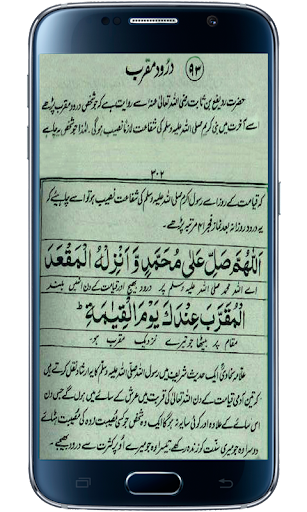 ۹۳ درُود مقرب
حضرت رویفع بن ثابت رضی اللہ تعالیٰ عنہ سے روایت ہے کہ جو شخص درود مقرب پڑھے
اسے آخرت میں نبی کرم صلی اللہ علیہ وسلم کی شفاعت نصیب ہوگی۔ لہٰذا جو شخص یہ چاہے
۳۰۲
کہ قیامت کے روز اسے رسول اکرم صلی اللہ علیہ وسلم کی شفاعت نصیب ہو تو اسے چاہیئے کہ
یہ درود روزانہ بعد نماز فجر ۴۱ مرتبہ پڑھے۔
اَللّٰهُمَّ صَلِّ عَلٰى مُحَمَّدٍ وَّ اَنْزِلْهُ الْمَقْعَدَ
اے اللہ محمد صلی اللہ علیہ وسلم پر درود بھیج اور قیامت کے دن انھیں بلند
الْمُقَرَّبَ عِنْدَكَ يَوْمَ الْقِيٰمَةِ ط
مقام پر بیٹھا جو تیرے نزدیک مقرب ہو۔
علامہ سخاوی ایک حدیث شریف میں رسول اللہ صلی اللہ علیہ وسلم کا یہ ارشاد نقل کرتے ہیں
کہ تین آدمی قیامت کے دن اللہ تعالیٰ کی قربت میں عرش کے سائے میں ہوں گے جس دن
اس کے سائے کے علاوہ اور کوئی سایہ نہ ہوگا ایک وہ شخص جو کسی مصیبت زدہ کی مصیبت ہٹائے
دوسرا وہ جو میری سنّت کو زندہ رکھے تیسرا وہ جو میرے اُوپر کثرت سے درود بھیجے۔